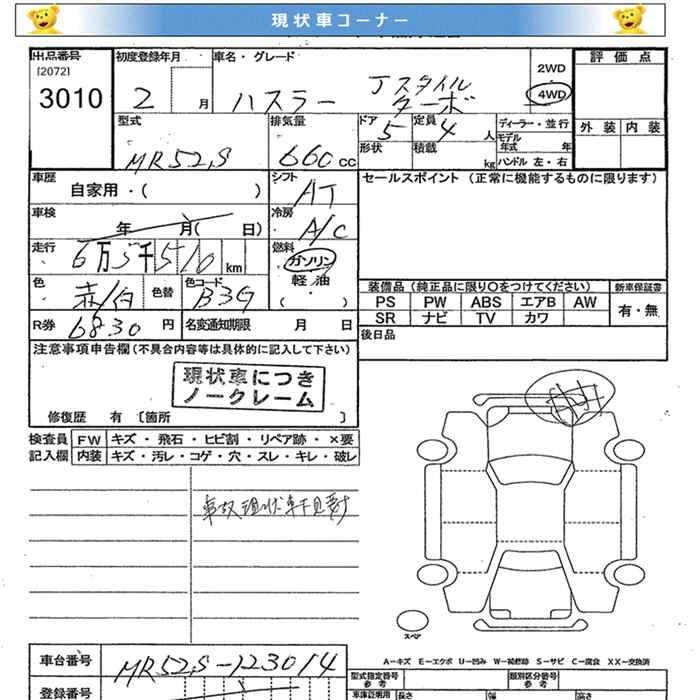 現状車コーナー
出品番号
[2072]
3010
初度登録年月
2 月
車名・グレード
ハスラー Jスタイル
ターボ
2WD
4WD
評価点
外装 内装
型式
MR52S
排気量
660 cc
ドア 5
定員 4 人
形状
積載 kg
ディーラー・並行
モデル年式 年
ハンドル 左・右
車歴
自家用・( )
シフト
AT
車検
年 月( 日)
冷房
A/C
走行
6万5千510 km
燃料
ガソリン
軽油
( )
色
赤/白
色替
色コード
B3G
R券 6830 円
名変通知期限 月 日
セールスポイント (正常に機能するものに限ります)
装備品 (純正品に限り○をつけてください)
新車保証書
PS PW ABS エアB AW
有・無
SR ナビ TV カワ
後日品
注意事項申告欄(不具合内容等は具体的に記入して下さい)
現状車につき
ノークレーム
修復歴 有〔箇所 〕
検査員 FW キズ・飛石・ヒビ割・リペア跡・×要
記入欄 内装 キズ・汚レ・コゲ・穴・スレ・キレ・破レ
事故現状車下見要す
スペア
A-キズ E-エクボ U-凹み W-補修跡 S-サビ C-腐食 XX-交換済
車台番号
MR52S-123014
登録番号
型式指定番号
参考
類別区分番号
参考
車庫証明用 長さ 幅 高さ